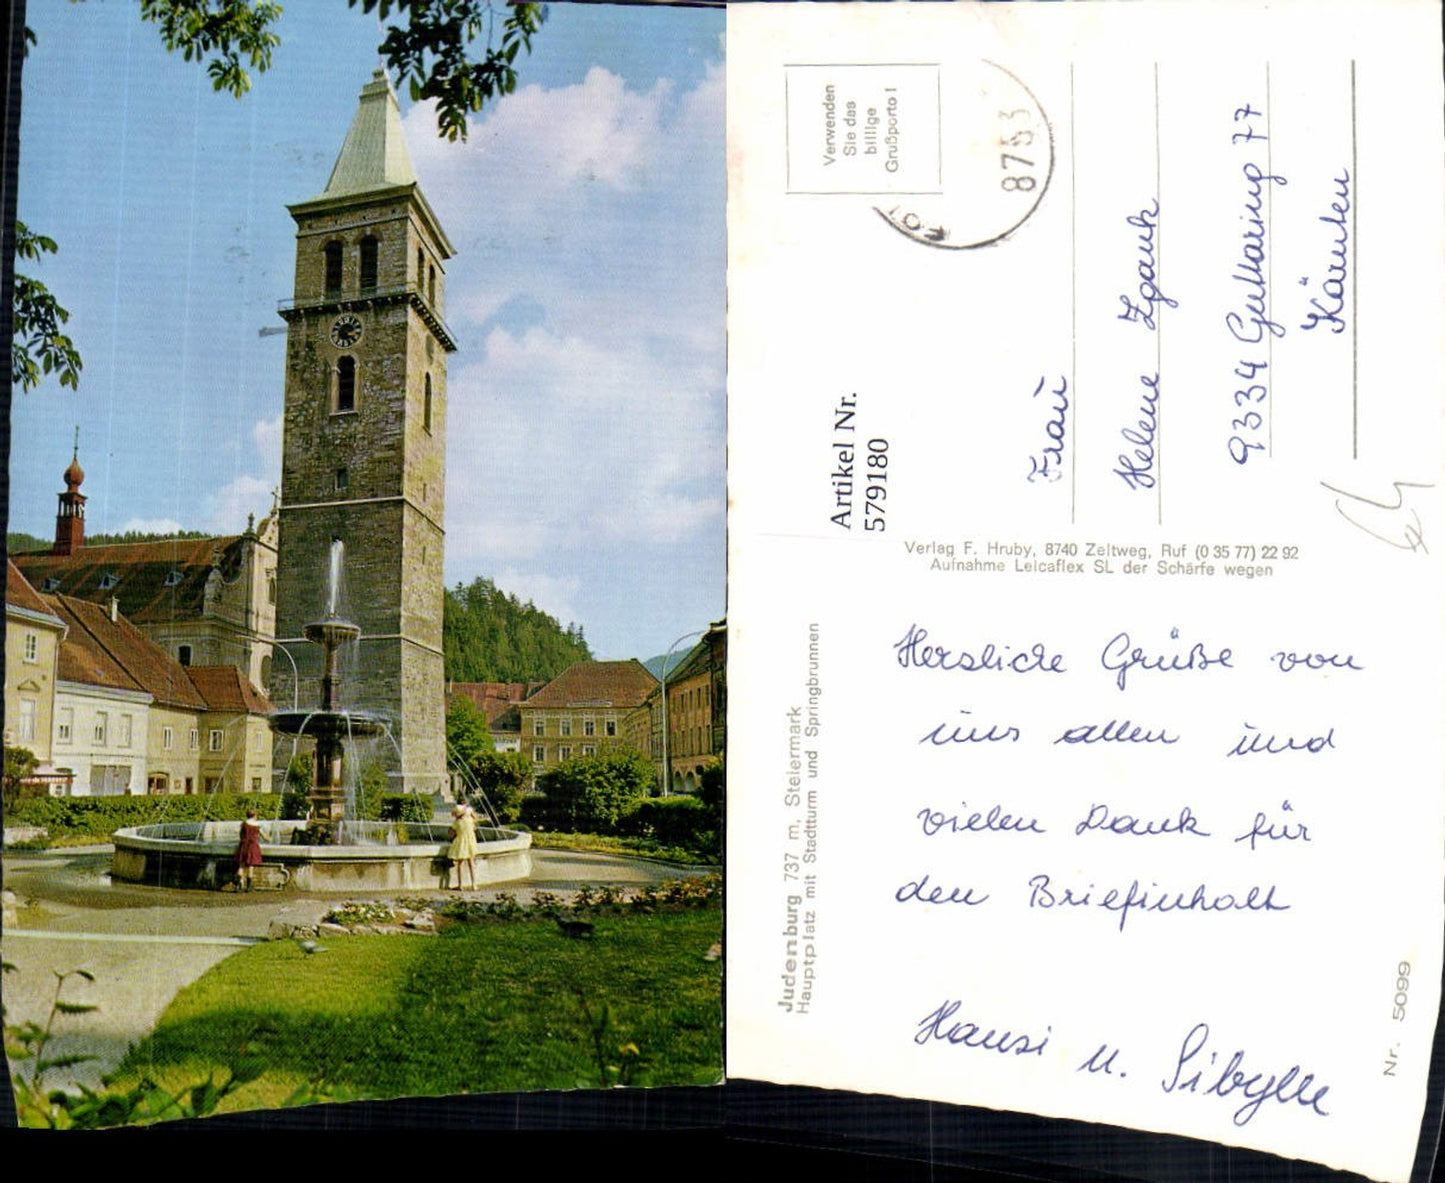 Verwenden
Sie das
billige
Grußporto !
8753
Artikel Nr.
579180
Frau
Helene Zgank
9334 Guttaring 77
Kärnten
Verlag F. Hruby, 8740 Zeltweg, Ruf (0 35 77) 22 92
Aufnahme Leicaflex SL der Schärfe wegen
Judenburg 737 m, Steiermark
Hauptplatz mit Stadtturm und Springbrunnen
Herzliche Grüße von
uns allen und
vielen Dank für
den Briefinhalt
Hansi u. Sibylle
Nr. 5099